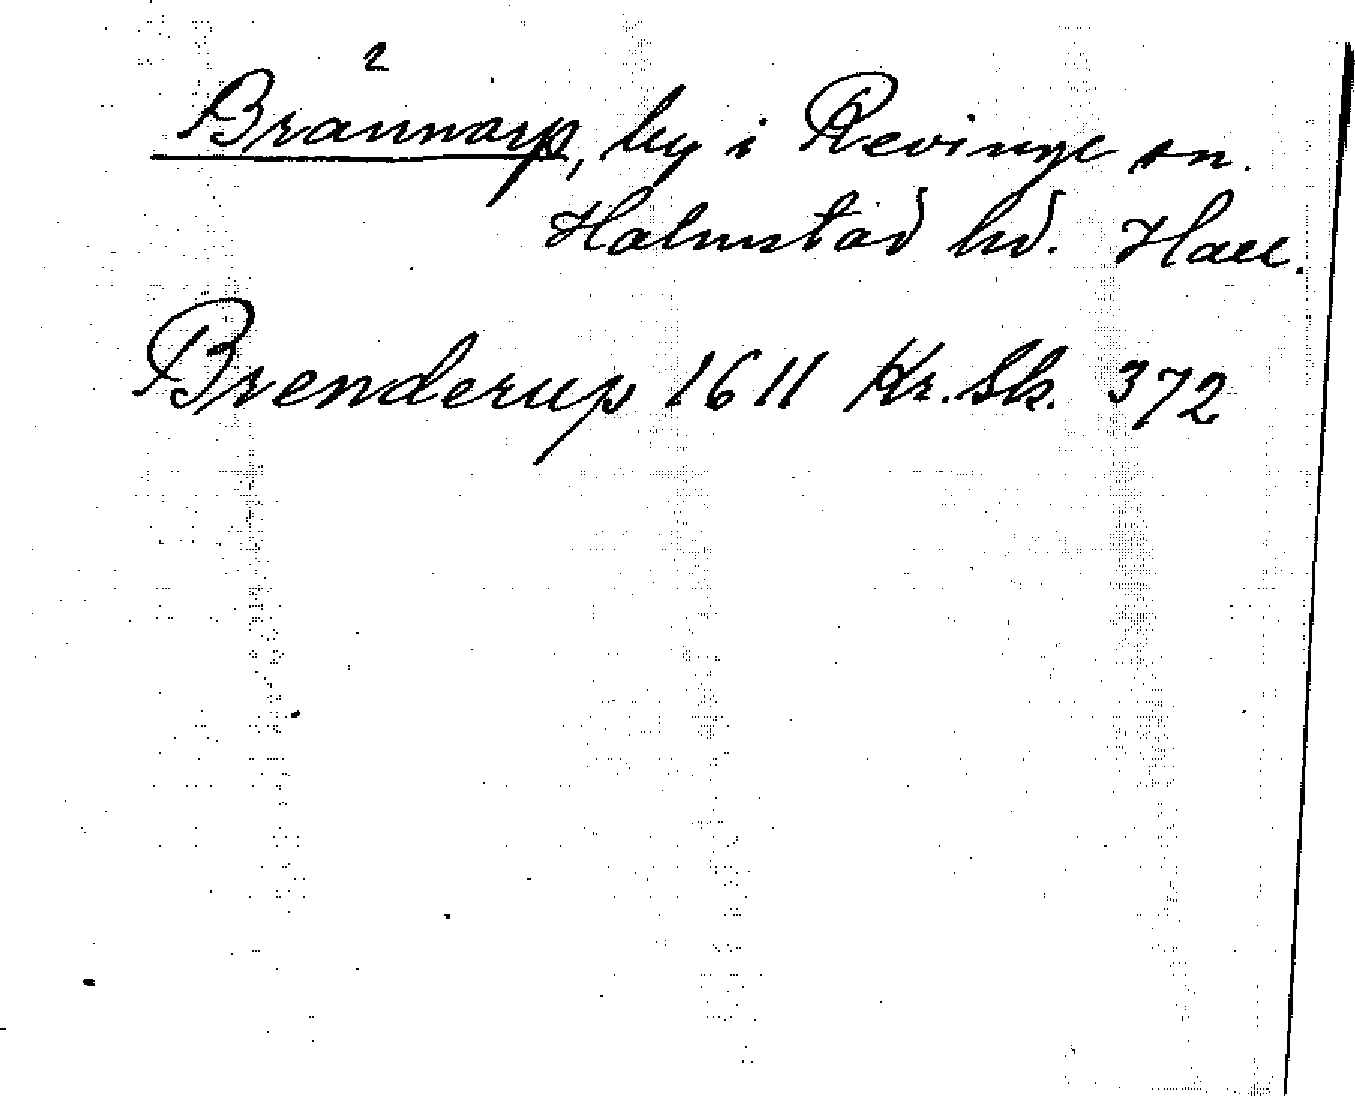 2
Brännarp, by i Revinge sn.
Halmstad hd. Hall.
Brenderup 1611 Kr. Sk. 372